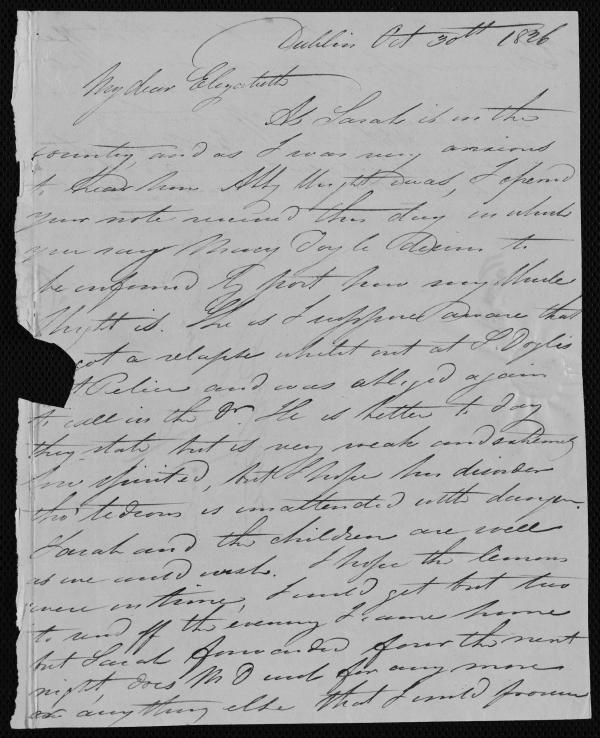 Dublin Oct 30th 1826
My dear Elizabeth
As Sarah is in the
country and as I was very anxious
to hear how Abby Wright was, I opened
your note received this day in which
you say Mary Doyle desires to
be informed by post how my Uncle
Wright is. She is I suppose aware that
got a relapse whilst out at J. Doyles
and was obliged again
to call in the Dr. He is better to day
they state but is very weak and extremely
low spirited, but I hope his disorder
tho' tedious is unattended with danger.
Sarah and the children are well
as we could wish. I hope the lemons
were in time, I could get but two
to send off the evening I came home
but Sarah forwarded four the next
night, does M D wish for any more
or anything else that I could procure